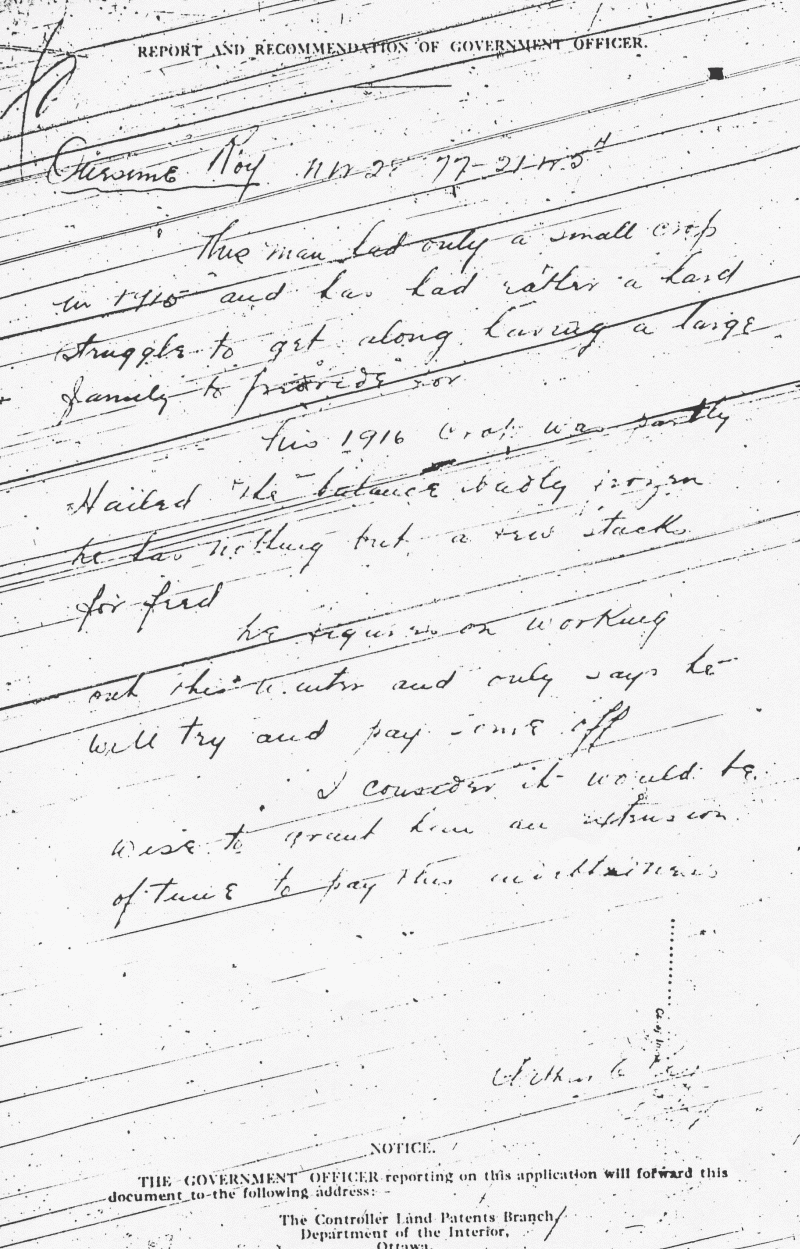 REPORT AND RECOMMENDATION OF GOVERNMENT OFFICER.
Roy NW 28 77-21-W5th
This man had only a small crop
in 1915 and has had rather a hard
struggle to get along having a large
family to provide for
his 1916 crop was partly
Hailed the balance badly frozen
he has nothing but a few stacks
for feed
he figures on working
out this winter and only says he
will try and pay some off
I consider it would be
wise to grant him an extension
of time to pay this indebtedness
NOTICE.
THE GOVERNMENT OFFICER reporting on this application will forward this
document to the following address: -
The Controller Land Patents Branch,
Department of the Interior,
Ottawa.